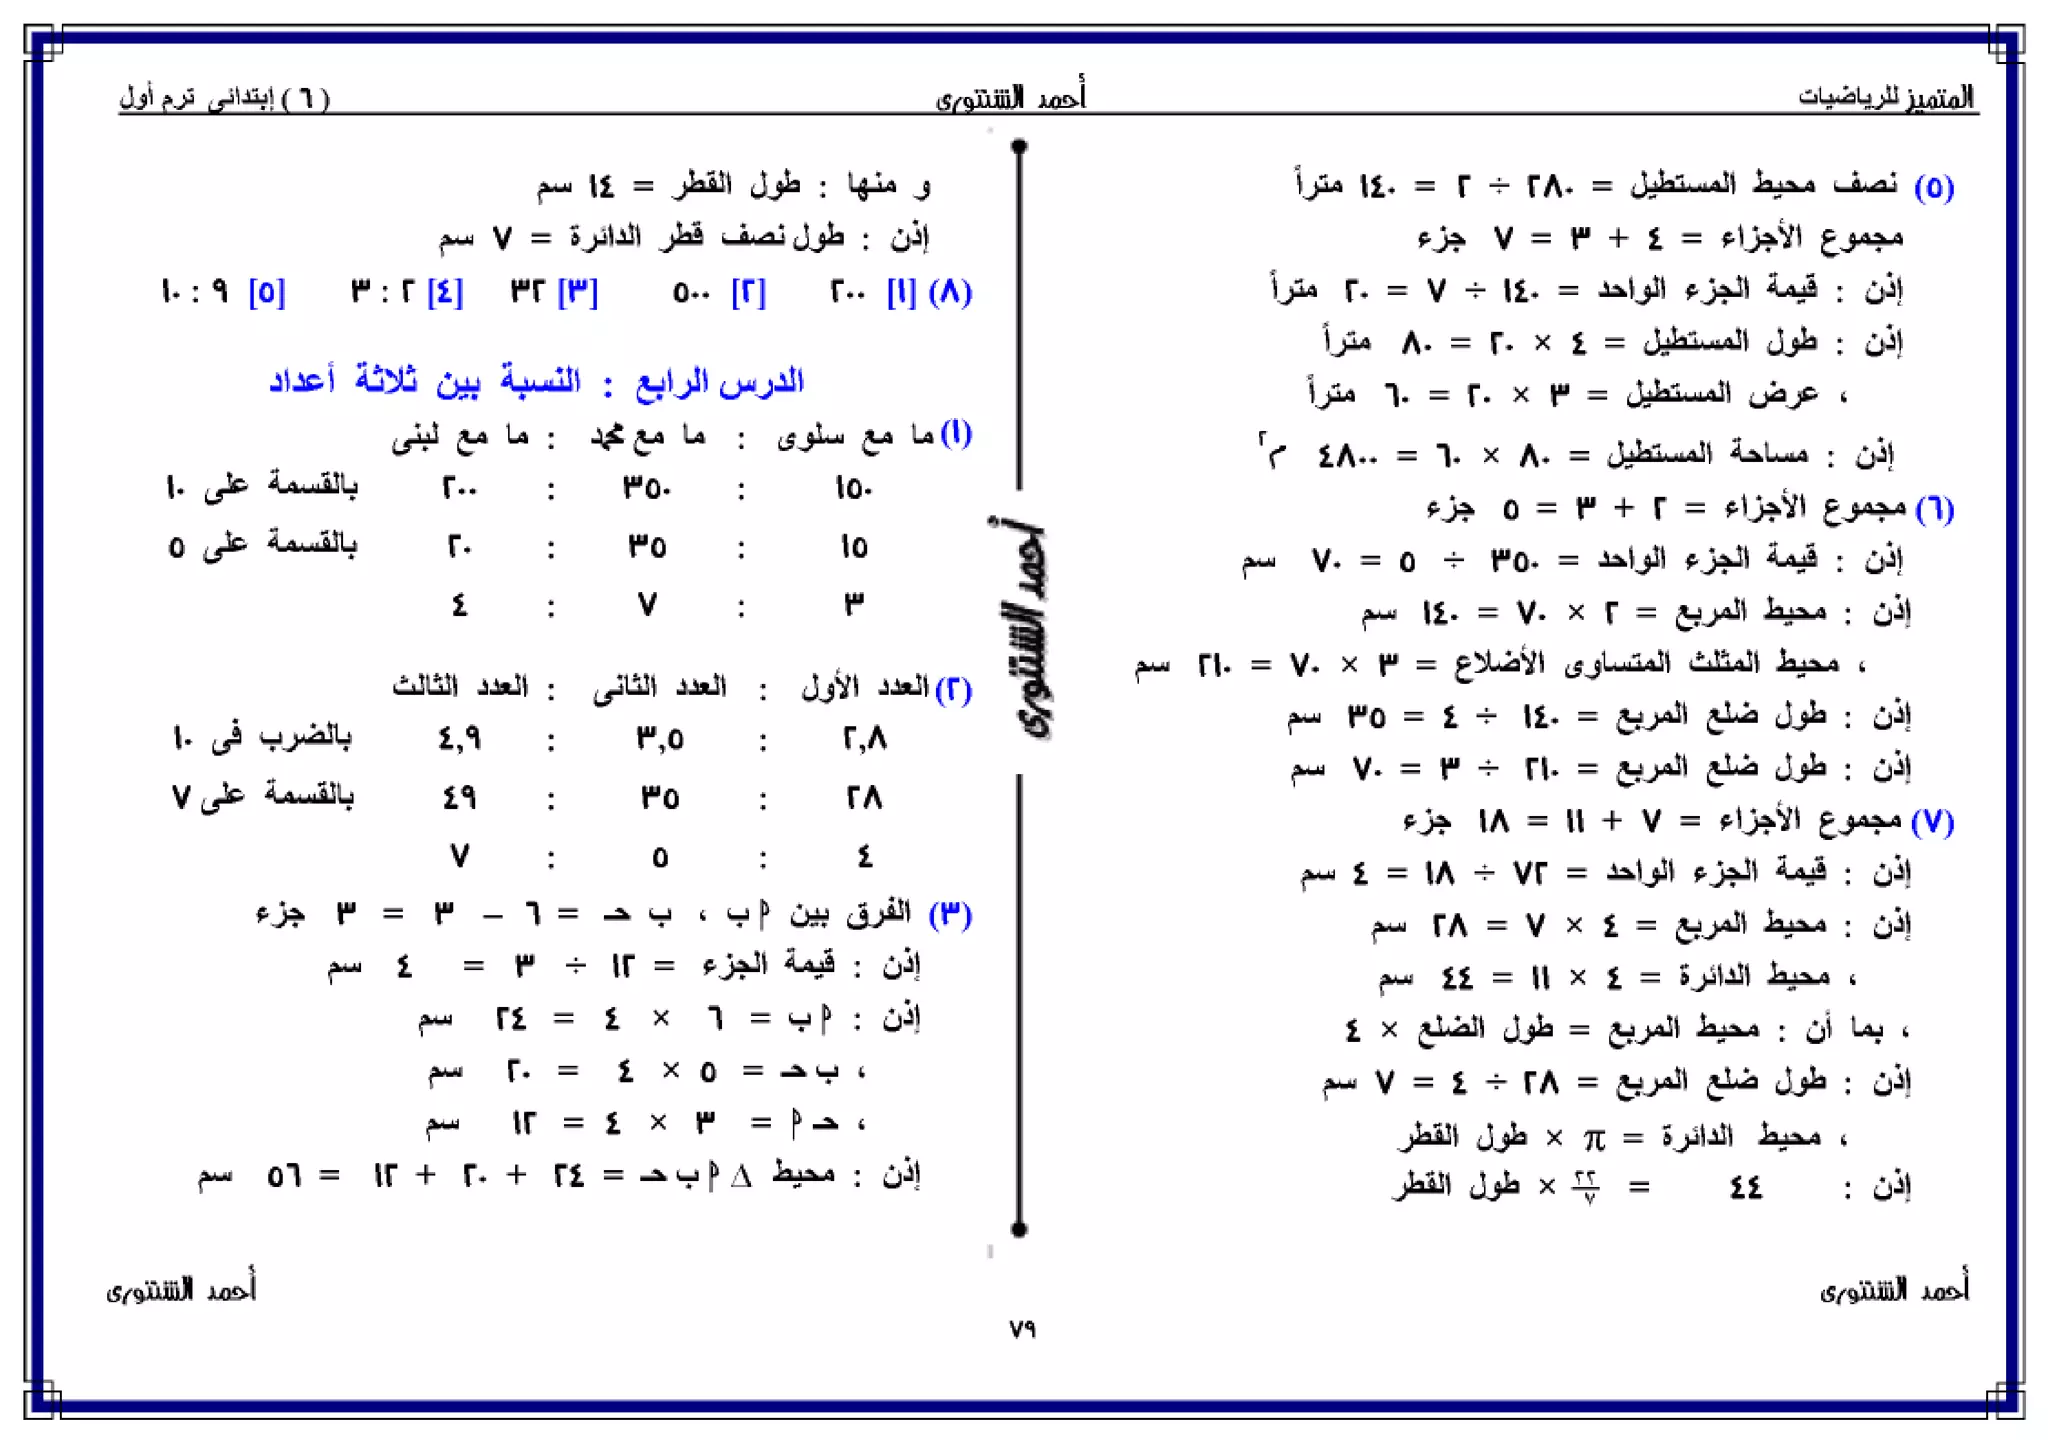 المتميز للرياضيات
أحمد الشنتورى
( ٦ ) إبتدائى ترم أول
(٥) نصف محيط المستطيل = ٢٨٠ ÷ ٢ = ١٤٠ متراً
مجموع الأجزاء = ٤ + ٣ = ٧ جزء
إذن : قيمة الجزء الواحد = ١٤٠ ÷ ٧ = ٢٠ متراً
إذن : طول المستطيل = ٤ × ٢٠ = ٨٠ متراً
، عرض المستطيل = ٣ × ٢٠ = ٦٠ متراً
إذن : مساحة المستطيل = ٨٠ × ٦٠ = ٤٨٠٠ م٢
(٦) مجموع الأجزاء = ٢ + ٣ = ٥ جزء
إذن : قيمة الجزء الواحد = ٣٥٠ ÷ ٥ = ٧٠ سم
إذن : محيط المربع = ٢ × ٧٠ = ١٤٠ سم
، محيط المثلث المتساوى الأضلاع = ٣ × ٧٠ = ٢١٠ سم
إذن : طول ضلع المربع = ١٤٠ ÷ ٤ = ٣٥ سم
إذن : طول ضلع المربع = ٢١٠ ÷ ٣ = ٧٠ سم
(٧) مجموع الأجزاء = ٧ + ١١ = ١٨ جزء
إذن : قيمة الجزء الواحد = ٧٢ ÷ ١٨ = ٤ سم
إذن : محيط المربع = ٤ × ٧ = ٢٨ سم
، محيط الدائرة = ٤ × ١١ = ٤٤ سم
، بما أن : محيط المربع = طول الضلع × ٤
إذن : طول ضلع المربع = ٢٨ ÷ ٤ = ٧ سم
، محيط الدائرة = π × طول القطر
إذن : ٤٤ = ٢٢/٧ × طول القطر
أحمد الشنتورى
و منها : طول القطر = ١٤ سم
إذن : طول نصف قطر الدائرة = ٧ سم
(٨) [١] ٢٠٠ [٢] ٥٠٠ [٣] ٣٢ [٤] ٢ : ٣ [٥] ٩ : ١٠
الدرس الرابع : النسبة بين ثلاثة أعداد
(١) ما مع سلوى : ما مع محمد : ما مع لبنى
١٥٠ : ٣٥٠ : ٢٠٠ بالقسمة على ١٠
١٥ : ٣٥ : ٢٠ بالقسمة على ٥
٣ : ٧ : ٤
(٢) العدد الأول : العدد الثانى : العدد الثالث
٢,٨ : ٣,٥ : ٤,٩ بالضرب فى ١٠
٢٨ : ٣٥ : ٤٩ بالقسمة على ٧
٤ : ٥ : ٧
(٣) الفرق بين ا ب ، ب حـ = ٦ – ٣ = ٣ جزء
إذن : قيمة الجزء = ١٢ ÷ ٣ = ٤ سم
إذن : ا ب = ٦ × ٤ = ٢٤ سم
، ب حـ = ٥ × ٤ = ٢٠ سم
، حـ ا = ٣ × ٤ = ١٢ سم
إذن : محيط Δ ا ب حـ = ٢٤ + ٢٠ + ١٢ = ٥٦ سم
أحمد الشنتورى
أحمد الشنتورى
٧٩